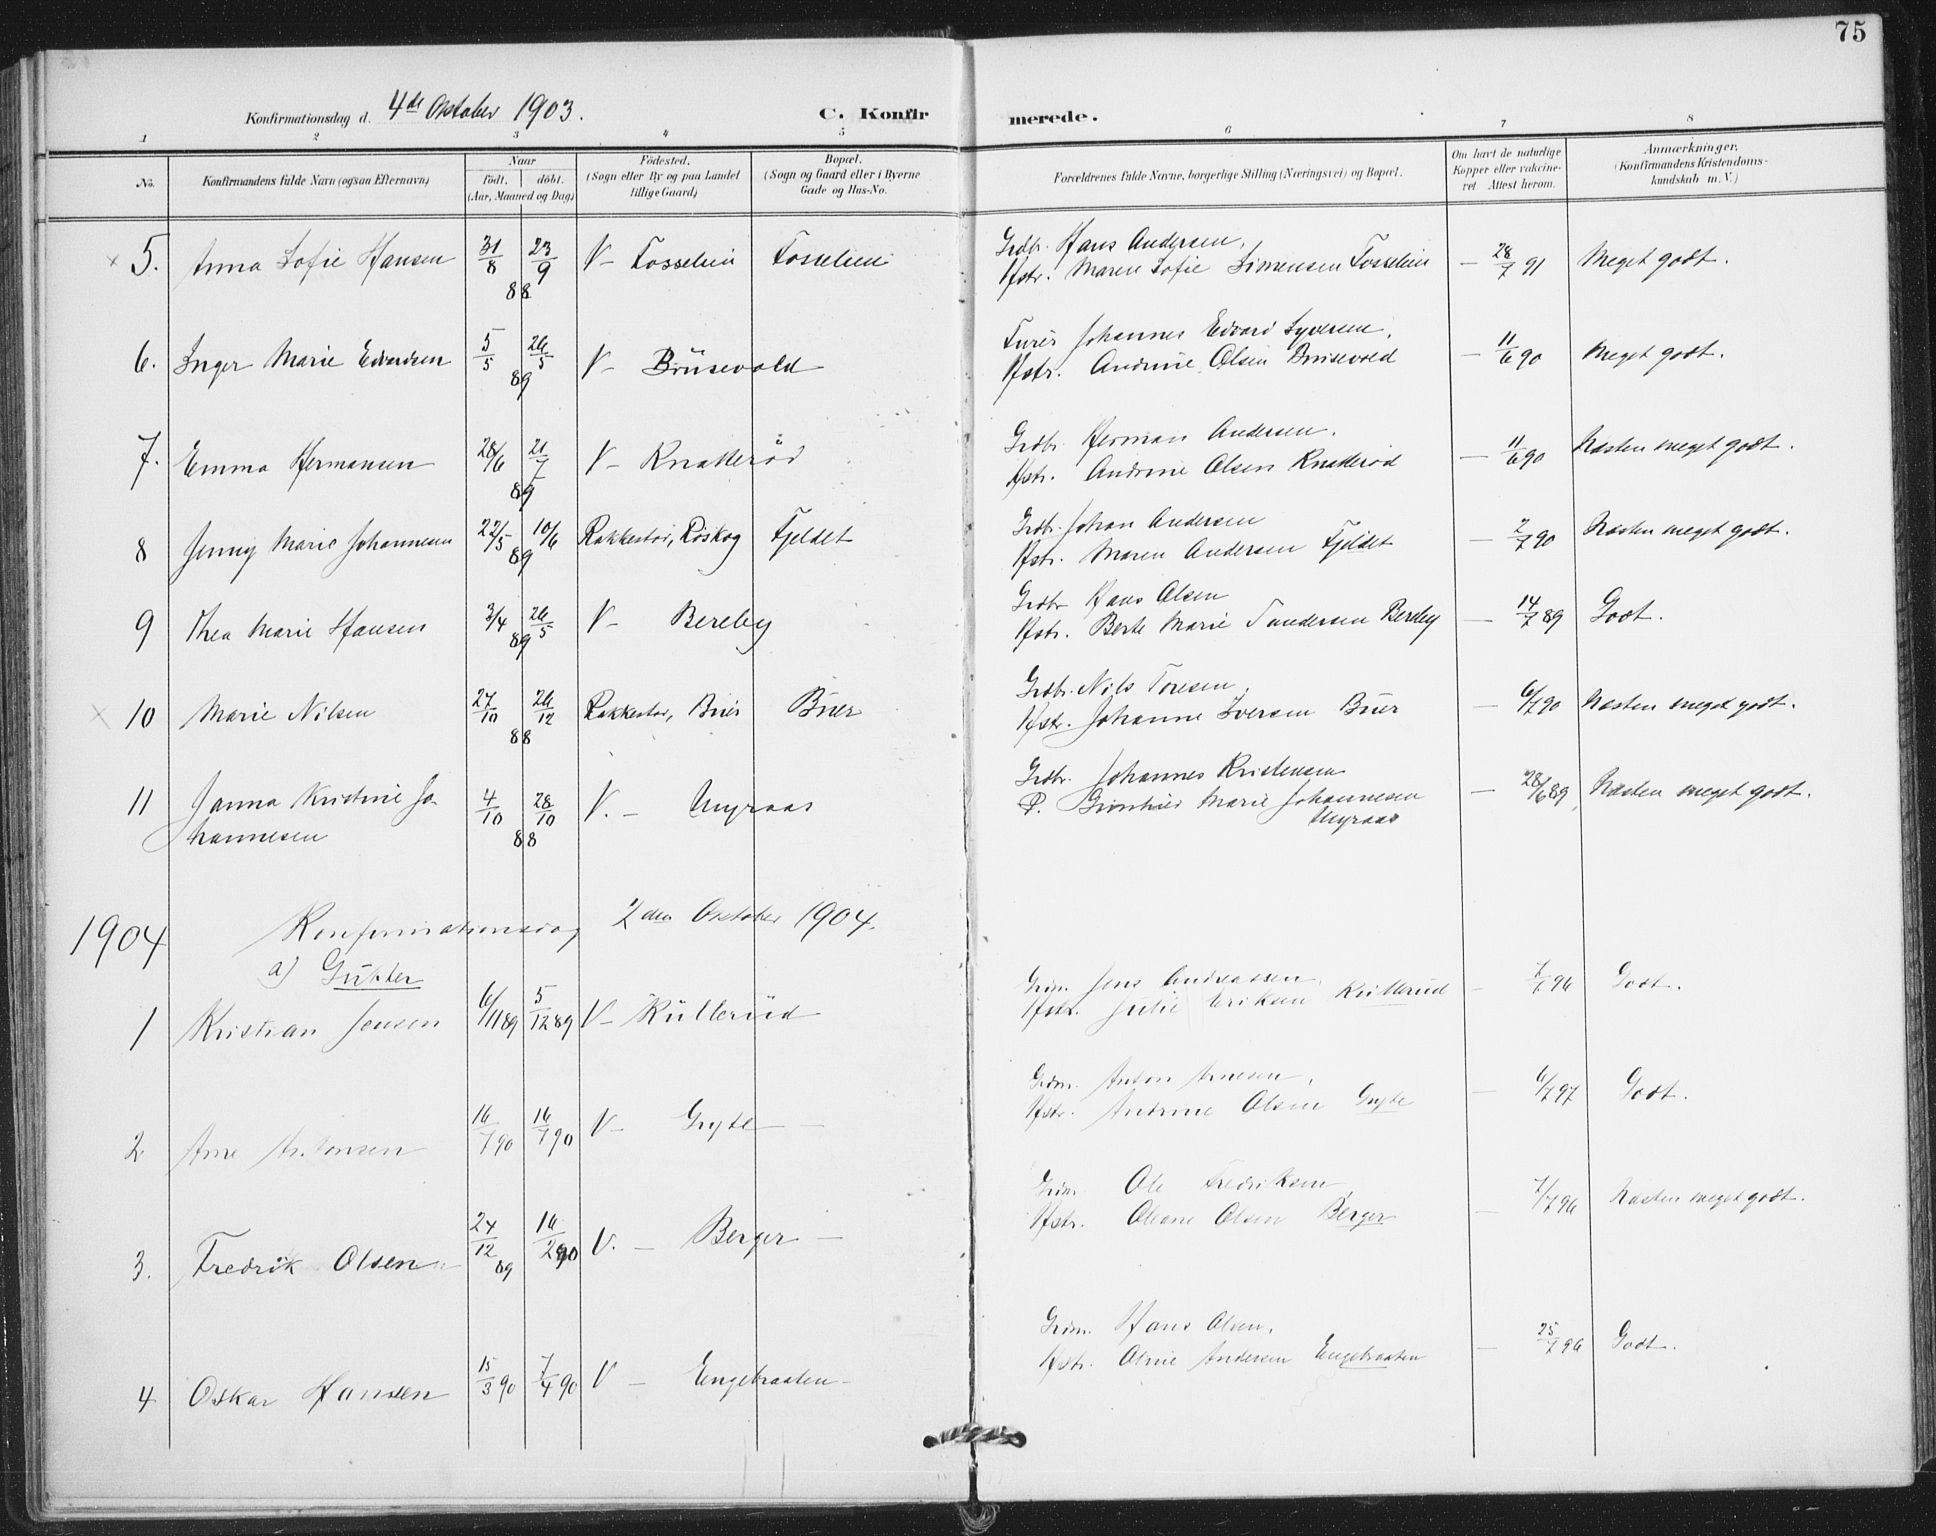 75
Konfirmationsdag d. 4de Oktober 1903.
C. Konfirmerede.
1 2 3 4 5 6 7 8
No.
Konfirmandens fulde Navn (ogsaa Efternavn)
Naar
født. døbt.
(Aar, Maaned og Dag)
Fødested.
(Sogn eller By og paa Landet
tillige Gaard)
Bopæl.
(Sogn og Gaard eller i Byerne
Gade og Hus-No.
Forældrenes fulde Navne, borgerlige Stilling (Næringsvei) og Bopæl.
Om havt de naturlige
Kopper eller vakcine-
ret Attest herom.
Anmærkninger.
(Konfirmandens Kristendoms-
kundskab m. V.)
× 5. Anna Sofie Hansen 31/8 23/9 V– Fosselien Fosselien Grdbr. Hans Andersen, – 28/7 91 Meget godt.
88 Hstr. Maren Sofie Simensen Fosselien
6. Inger Marie Edvardsen 5/5 26/5 V– Brüsevold Johannes Edvard Syversen, – 11/6 90 Meget godt.
89 Hstr. Andrine Olsen Brusevold
7. Emma Hermansen 28/6 21/7 V– Knatterød Grdbr. Herman Andersen. – 11/6 90 Næsten meget godt.
89 Hstr. Andrine Olsen Knatterød
8 Jenny Marie Johannesen 22/5 10/6 Rakkestad, Røskog Fjeldet Grdbr. Johan Andersen – 2/7 90 Næsten meget godt.
89 Hstr. Maren Andersen Fjeldet
9 Thea Marie Hansen 3/4 26/5 V– Bereby Grdbr Hans Olsen – 14/7 89 Godt.
89 Hstr. Berte Marie Bereby
× 10 Marie Nilsen 27/10 26/12 Rakkestad, Buer Buer Grdbr. Nils Toresen, – 6/7 90 Næsten meget godt.
88 Hstr. Johanne Iversen Buer
11 Janna Kristine Jo- 4/10 28/10 V. – Ungraas Grdbr. Johannes Kristensen – 28/6 89 Næsten meget godt.
hannesen 88 P. Marie Johannesen
Ungraas
1904 Konfirmationsdag 2den Oktober 1904.
a) Gutter
1 Kristian Jensen 6/11 89 5/12 89 V– Küllerüd Grdm. Jens Andreassen, – Godt.
Hstr. Julie Eriksen Kullerud
2 Arne Antonsen 16/7 90 V– Gryte – Grdm. Anton Arnesen, – 6/7 97 Godt.
Hstr. Andrine Olsen Gryte
3. Fredrik Olsen 24/12 89 16/2 90 V. – Berger – Grdm. Ole Fredriksen – 7/7 96 Næsten meget godt.
Hstr. Oleane Olsen Berger
4 Oskar Hansen 15/3 90 7/4 90 V – Engebraaten – Grdm. Hans Olsen, – 25/7 96 Godt.
Hstr. Oline Andersen Engebraaten